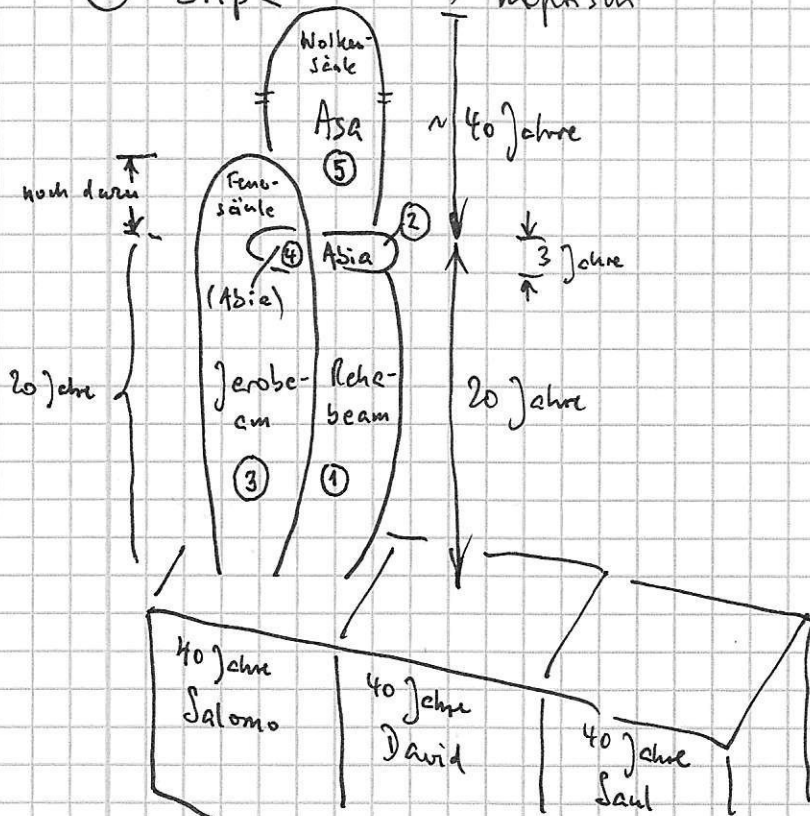 Wolken-
säule
Asa
⑤
~ 40 Jahre
noch dazu
Feuer-
säule
②
④
Abia
3 Jahre
(Abia)
20 Jahre
Jerobe-
am
Reha-
beam
20 Jahre
③
①
40 Jahre
Salomo
40 Jahre
David
40 Jahre
Saul